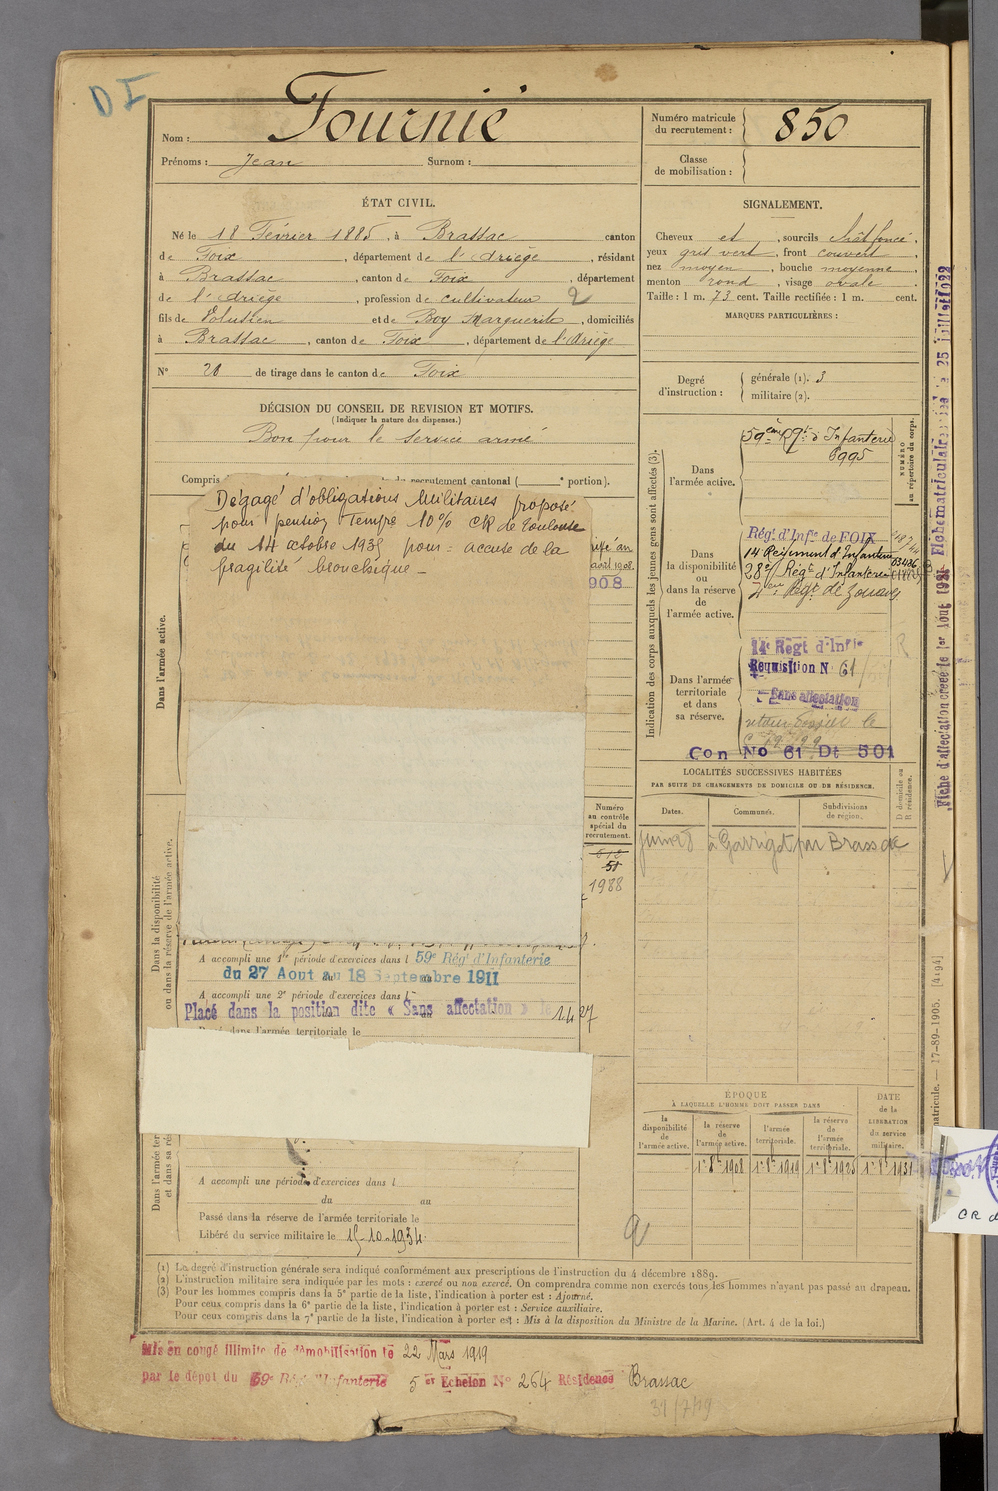 D I
Nom : Fournié
Prénoms : Jean Surnom :
Numéro matricule du recrutement : 850
Classe de mobilisation :
ÉTAT CIVIL.
Né le 18 Février 1885, à Brassac canton
de Foix, département de l'Ariège, résidant
à Brassac, canton de Foix, département
de l'Ariège, profession de cultivateur 2
fils de et de Boy Marguerite, domiciliés
à Brassac, canton de Foix, département de l'Ariège
N° 28 de tirage dans le canton de Foix
SIGNALEMENT.
Cheveux et, sourcils chât foncé,
yeux gris vert, front couvert,
nez moyen, bouche moyenne,
menton rond, visage ovale.
Taille : 1 m. 73 cent. Taille rectifiée : 1 m. cent.
MARQUES PARTICULIÈRES :
Degré d'instruction : générale (1). 3
militaire (2).
DÉCISION DU CONSEIL DE REVISION ET MOTIFS.
(Indiquer la nature des dispenses.)
Bon pour le service armé
Compris du recrutement cantonal ( e portion).
Dégagé d'obligations Militaires proposé
pour pension Tempre 10% CR de Toulouse
du 14 octobre 1935 pour : accuse de la
fragilité bronchique -
août 1908.
908
Dans l'armée active.
Dans la disponibilité
ou dans la réserve de l'armée active.
Numéro
au contrôle
spécial du
recrutement.
612
51
1988
A accompli une 1re période d'exercices dans l 59e Régt d'Infanterie
du 27 Aout au 18 Septembre 1911
A accompli une 2e période d'exercices dans l
Placé dans la position dite « Sans affectation » le 1.4 27
dans l'armée territoriale le
Dans l'armée ter
et dans sa ré
A accompli une période d'exercices dans l
du au
Passé dans la réserve de l'armée territoriale le
Libéré du service militaire le 15-10-1934.
Indication des corps auxquels les jeunes gens sont affectés (3).
NUMÉRO
au répertoire du corps.
Dans
l'armée active.
59ème Rgt d'Infanterie
6995
Dans
la disponibilité
ou
dans la réserve
de
l'armée active.
Régt d'Infie de FOIX
14 Régiment d'Infanterie
03426
28e Régt d'Infanterie
2ème Regt de Zouaves
Dans l'armée
territoriale
et dans
sa réserve.
14e Regt d'Infie
Requisition N 61
Sans affectation
Con No 61 Dt 501
R
LOCALITÉS SUCCESSIVES HABITÉES
PAR SUITE DE CHANGEMENTS DE DOMICILE OU DE RÉSIDENCE.
D domicile ou
R résidence.
Dates. Communes. Subdivisions de région.
à Garrigot par Brassac
ÉPOQUE
À LAQUELLE L'HOMME DOIT PASSER DANS
DATE
de la
LIBÉRATION
du service
militaire.
la disponibilité de l'armée active.
la réserve de l'armée active.
l'armée territoriale.
la réserve de l'armée territoriale.
1er 8bre 1908 1er 8bre 1919 1er 8bre 1925 1er 8bre 1931
(1) Le degré d'instruction générale sera indiqué conformément aux prescriptions de l'instruction du 4 décembre 1889.
(2) L'instruction militaire sera indiquée par les mots : exercé ou non exercé. On comprendra comme non exercés tous les hommes n'ayant pas passé au drapeau.
(3) Pour les hommes compris dans la 5e partie de la liste, l'indication à porter est : Ajourné.
Pour ceux compris dans la 6e partie de la liste, l'indication à porter est : Service auxiliaire.
Pour ceux compris dans la 7e partie de la liste, l'indication à porter est : Mis à la disposition du Ministre de la Marine. (Art. 4 de la loi.)
Mis en congé illimité de démobilisation le 22 Mars 1919
par le dépôt du 59e Régt d'Infanterie 5er Echelon N° 264 Résidence Brassac
31/7/19
Fiche d'affectation créée le 1er Aout 1931 - Fiche matriculaire le 25 juillet 1922
matricule. — 17-89-1905. [4194]
CR d